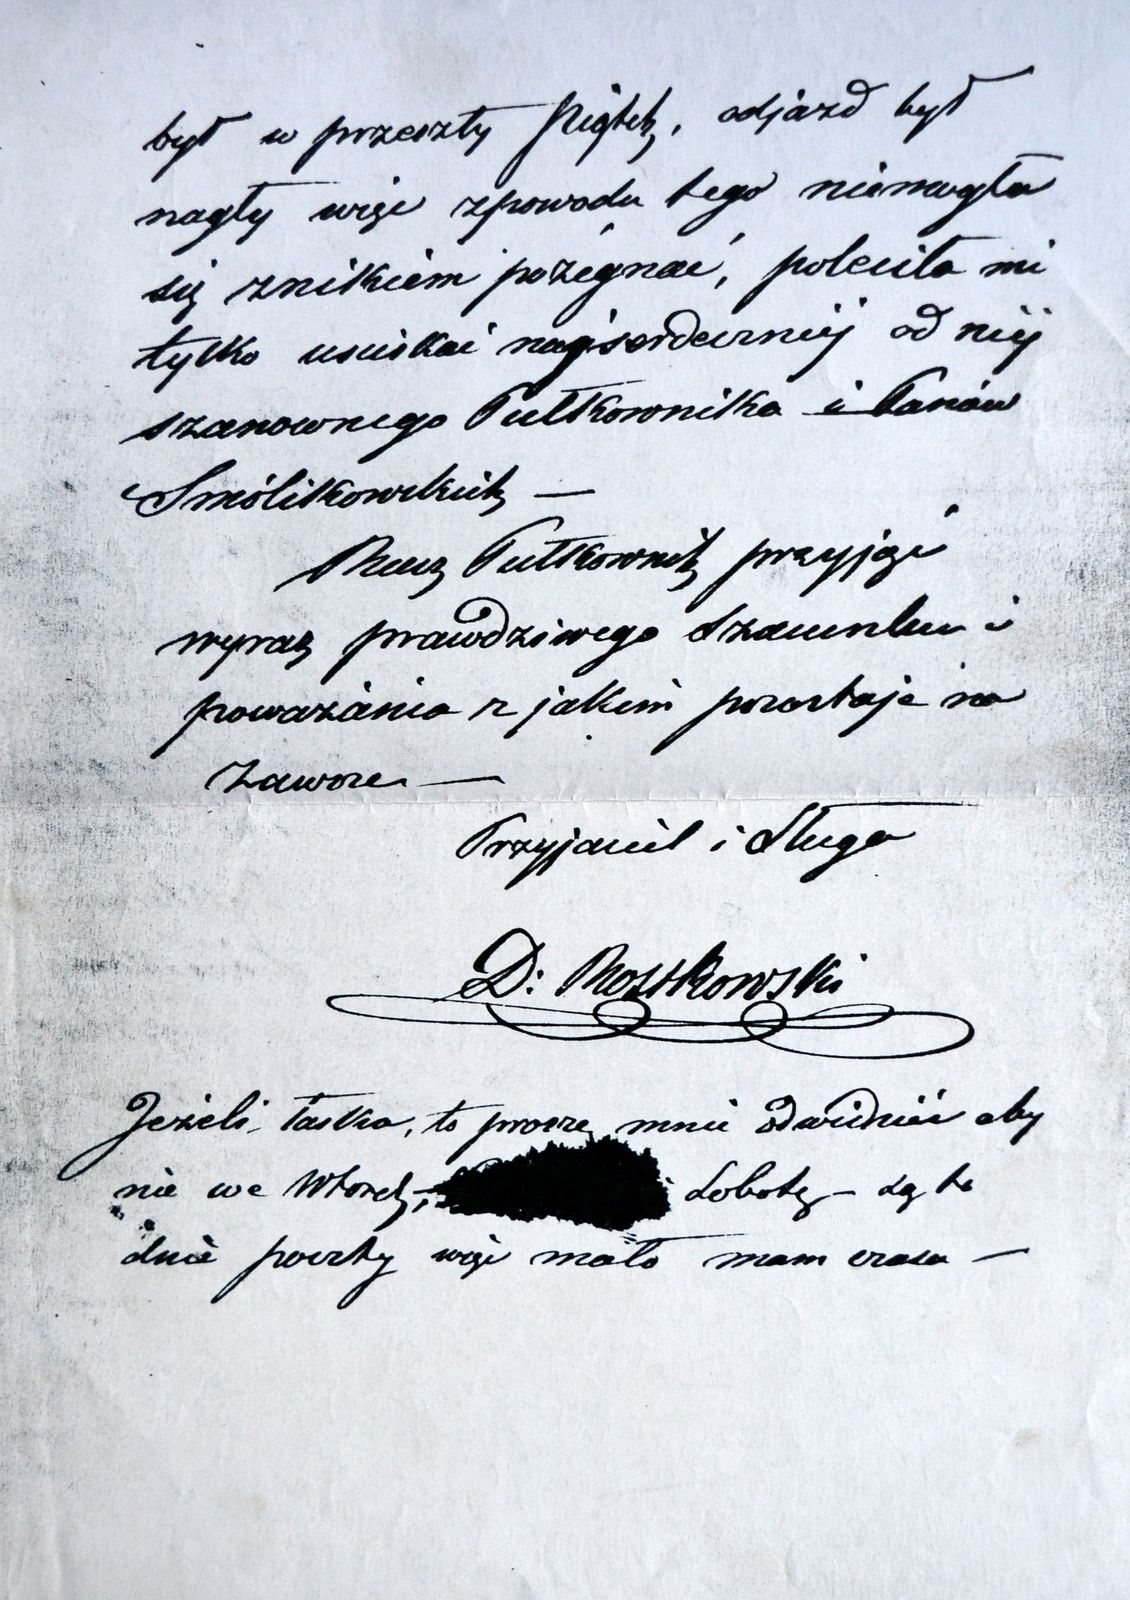 był w przeszły Piątek, odjazd był
nagły więc zpowodu tego niemogła
się znikiem pożegnać, poleciła mi
tylko uściskać najserdeczniej od niej
szanownego Pułkownika i Panów
Smólikowskich —
Racz Pułkownik przyjąć
wyraz prawdziwego szacunku i
poważania z jakim pozostaje na
zawsze —
Przyjaciel i Sługa
D: Rostkowski
Jeżeli łaska, to proszę mnie odwiedzić aby
nie we Wtorek, Sobotę — są to
dnie poczty więc mało mam czasu —